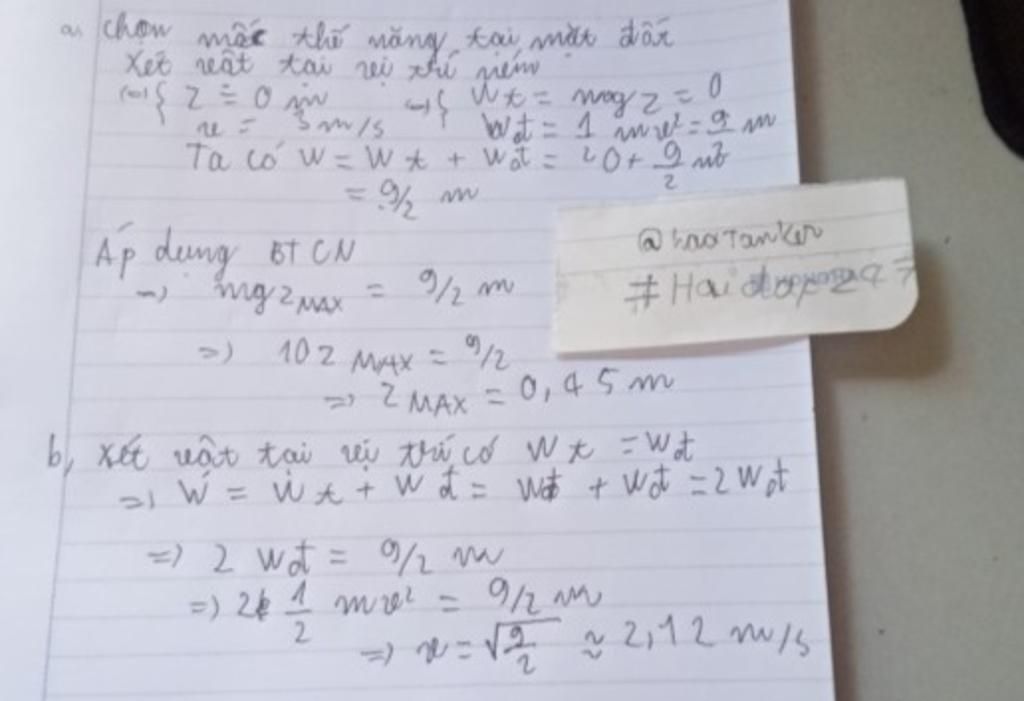 a, Chọn mốc thế năng tại mặt đất
Xét vật tại vị trí ném
(=) { z = 0 m (=) { Wt = mgz = 0
v = 3 m/s Wđ = 1 mv² = 9/2 m
Ta có W = Wt + Wđ = 0 + 9/2 m
= 9/2 m
Áp dụng BTCN
=> mgz MAX = 9/2 m
=> 10z MAX = 9/2
=> z MAX = 0,45 m
b, Xét vật tại vị trí có Wt = Wđ
=> W = Wt + Wđ = Wđ + Wđ = 2Wđ
=> 2Wđ = 9/2 m
=> 2 1/2 mv² = 9/2 m
=> v = √9/2 ≈ 2,12 m/s
#Hai